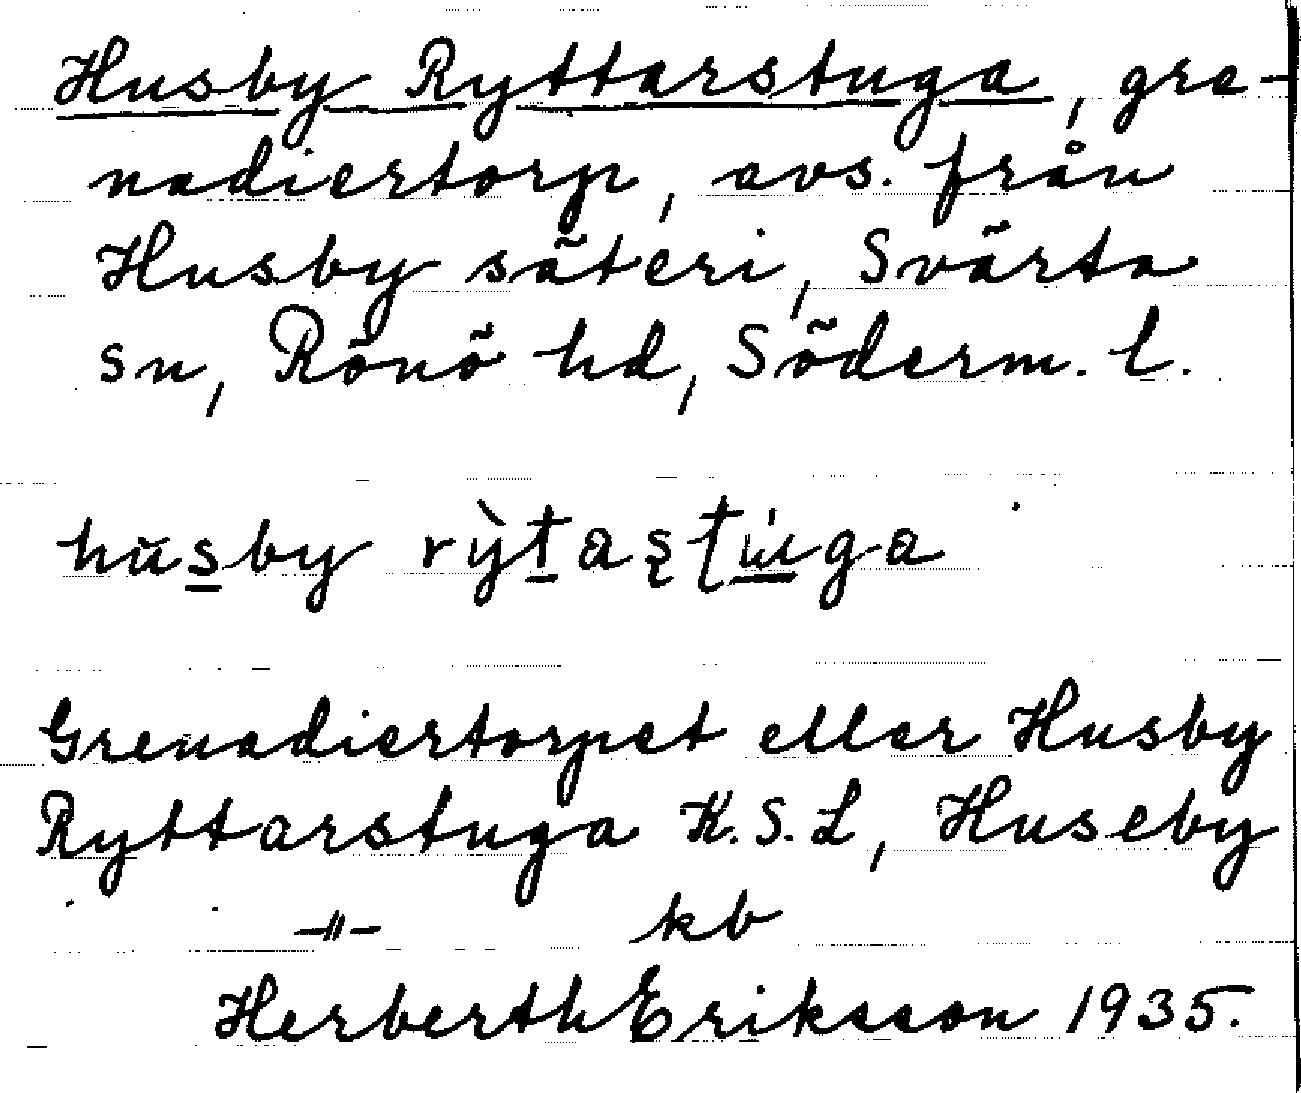 Husby Ryttarstuga, gre-
nadiertorp, avs. från
Husby säteri, Svärta
sn, Rönö hd, Söderm. l.
husby rỳtastuga
Grenadiertorpet eller Husby
Ryttarstuga K.S.L, Huseby
-"- kb
Herberth Eriksson 1935.